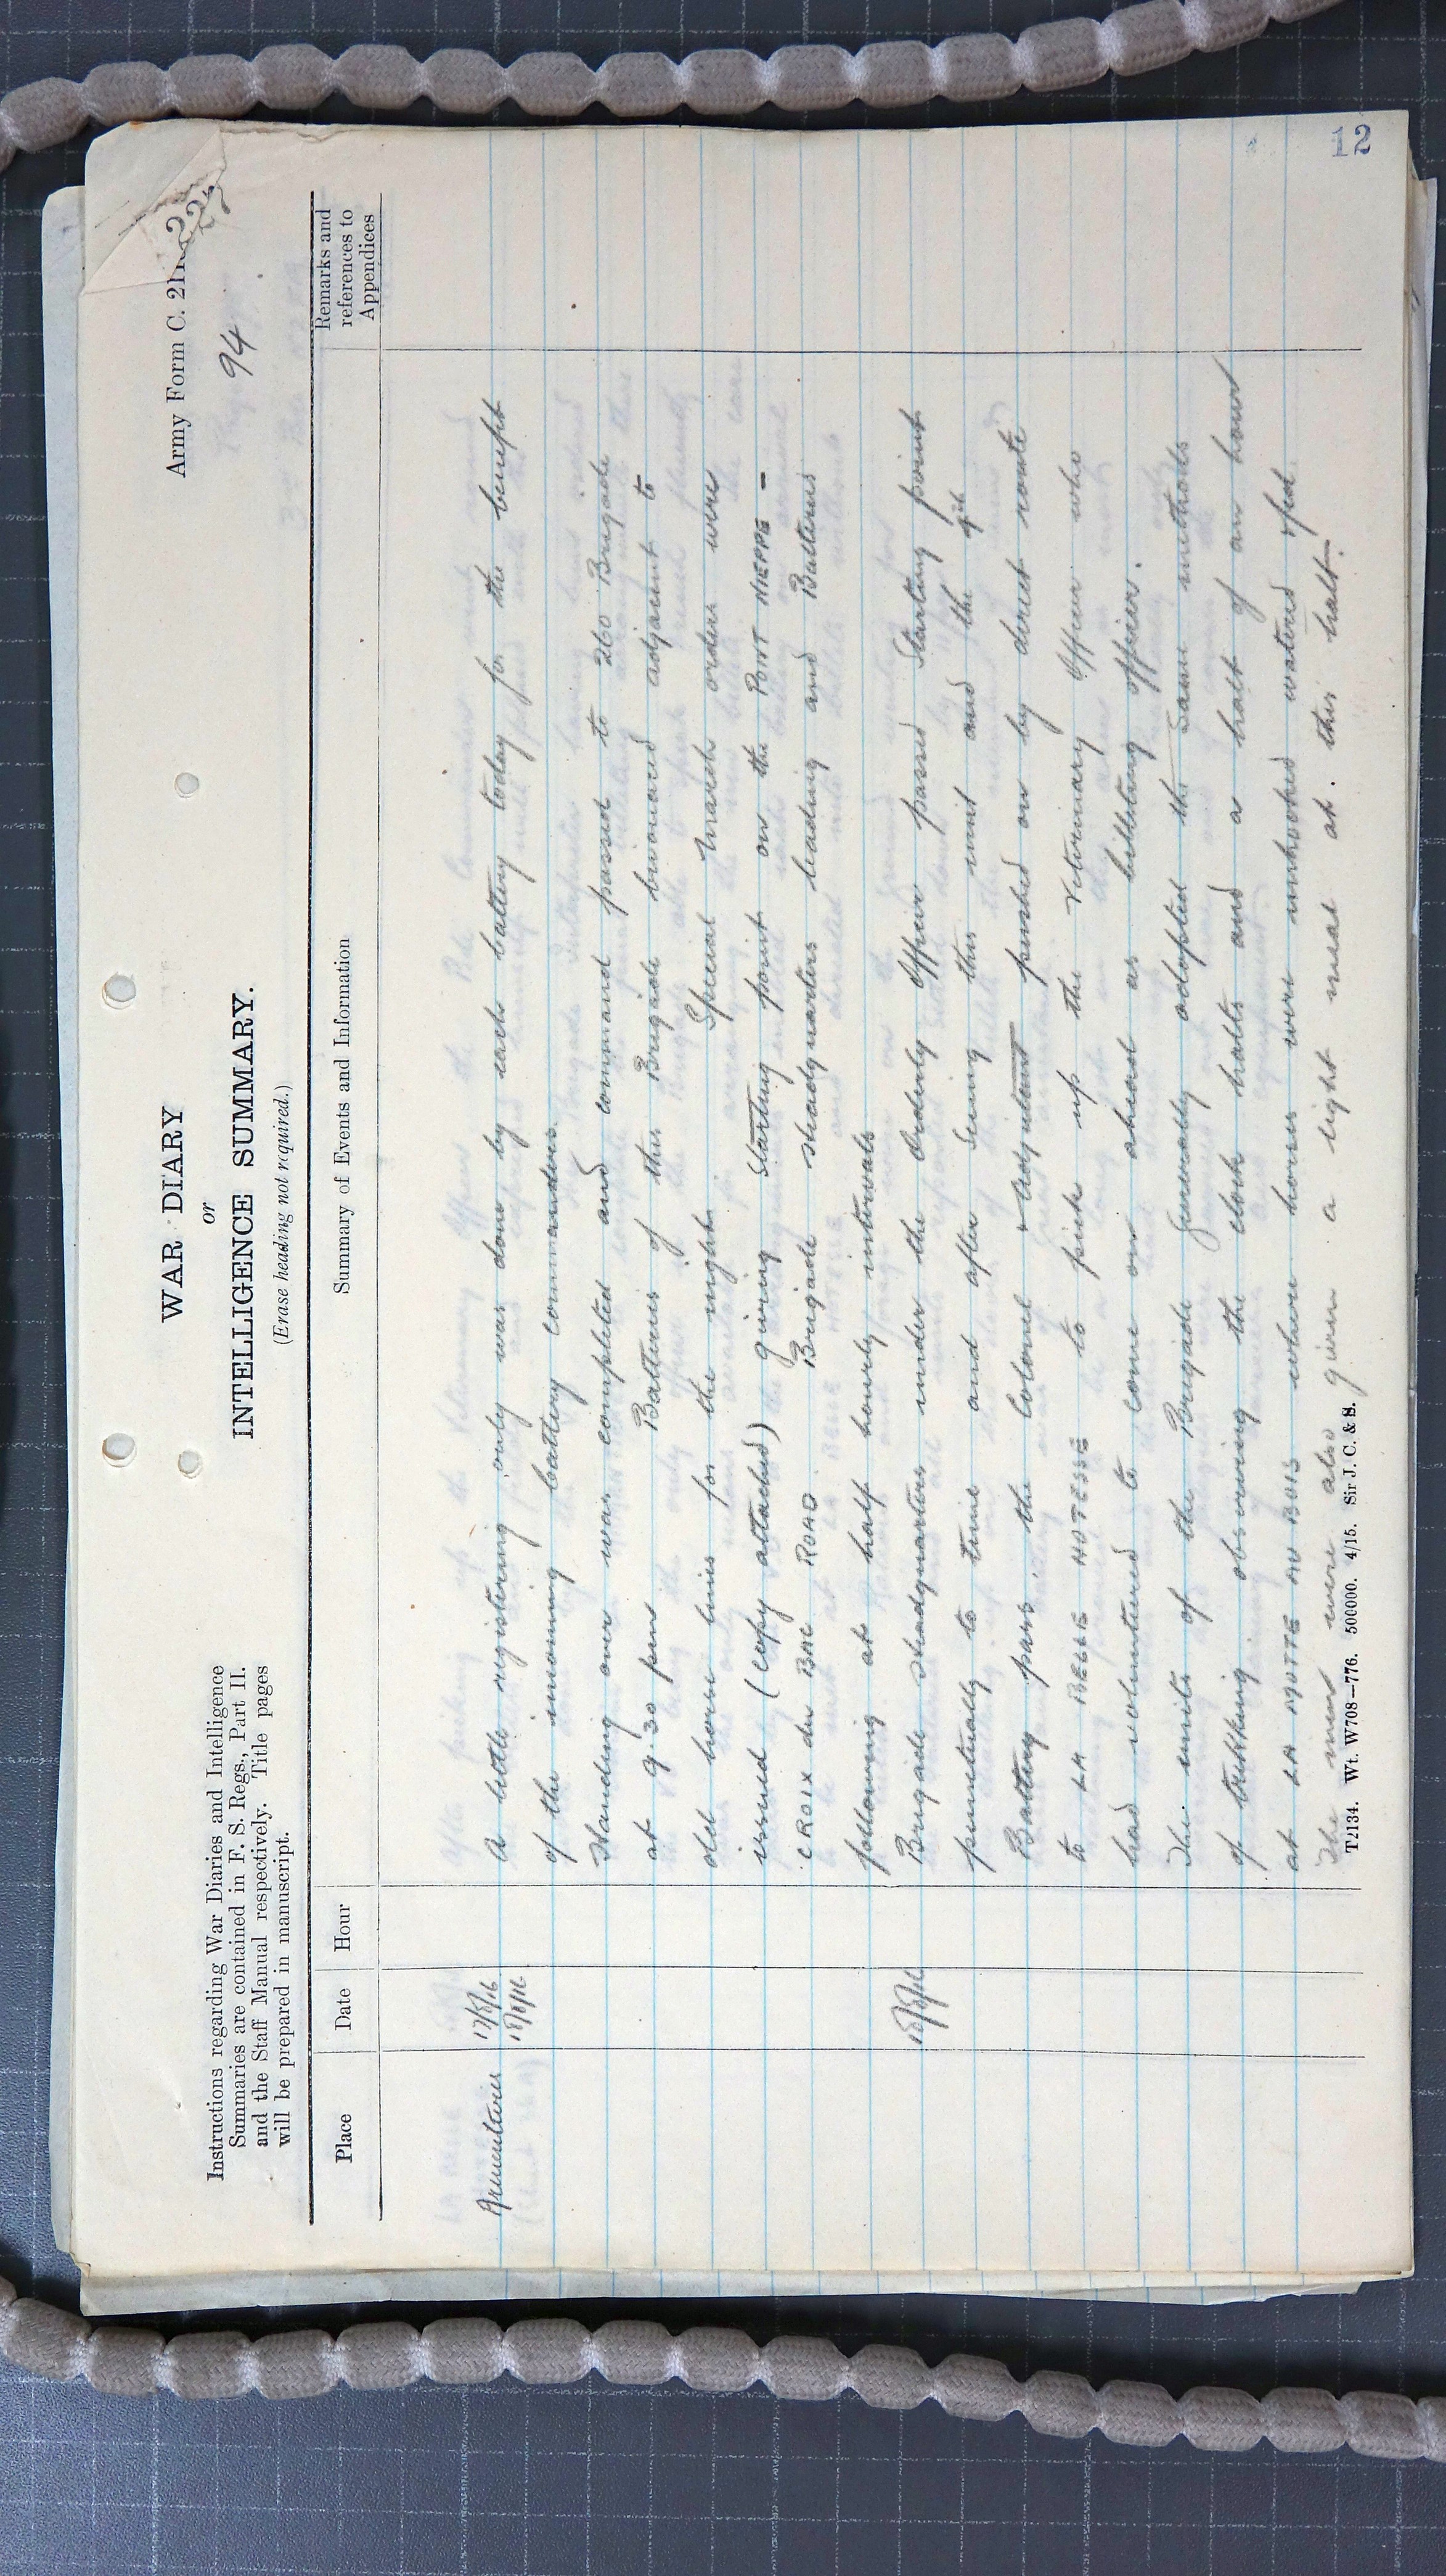 Army Form C. 211
94
WAR DIARY
or
INTELLIGENCE SUMMARY.
(Erase heading not required.)
Instructions regarding War Diaries and Intelligence
Summaries are contained in F. S. Regs., Part II.
and the Staff Manual respectively. Title pages
will be prepared in manuscript.
Place Date Hour Summary of Events and Information Remarks and references to Appendices
Armentieres 17/5/16 A little registering only was done by each battery today for the benefit
18/5/16 of the incoming battery commanders.
Handing over was completed and command passed to 260 Brigade
at 9.30 pm Batteries of this Brigade bivouaced adjacent to
old horse lines for the night. Special march orders were
issued (copy attached) giving starting point on the PONT NIEPPE -
CROIX du BAC ROAD Brigade Headquarters leading and Batteries
following at half hourly intervals
18/5/16 Brigade Headquarters under the Orderly Officer passed Starting point
punctually to time and after seeing this unit and the 4th
Battery pass, the Colonel & Adjutant pushed on by direct route
to LA BELLE HOTESSE to pick up the Veterinary Officer who
had volunteered to come on ahead as billeting officer.
The units of the Brigade generally adopted the same methods
of trekking observing the clock halts and a halt of an hour
at LA MOTTE AU BOIS where horses were unhooked watered & fed.
The men were also given a light meal at this halt.
T2134. Wt. W708—776. 500000. 4/15. Sir J. C. & S.
12